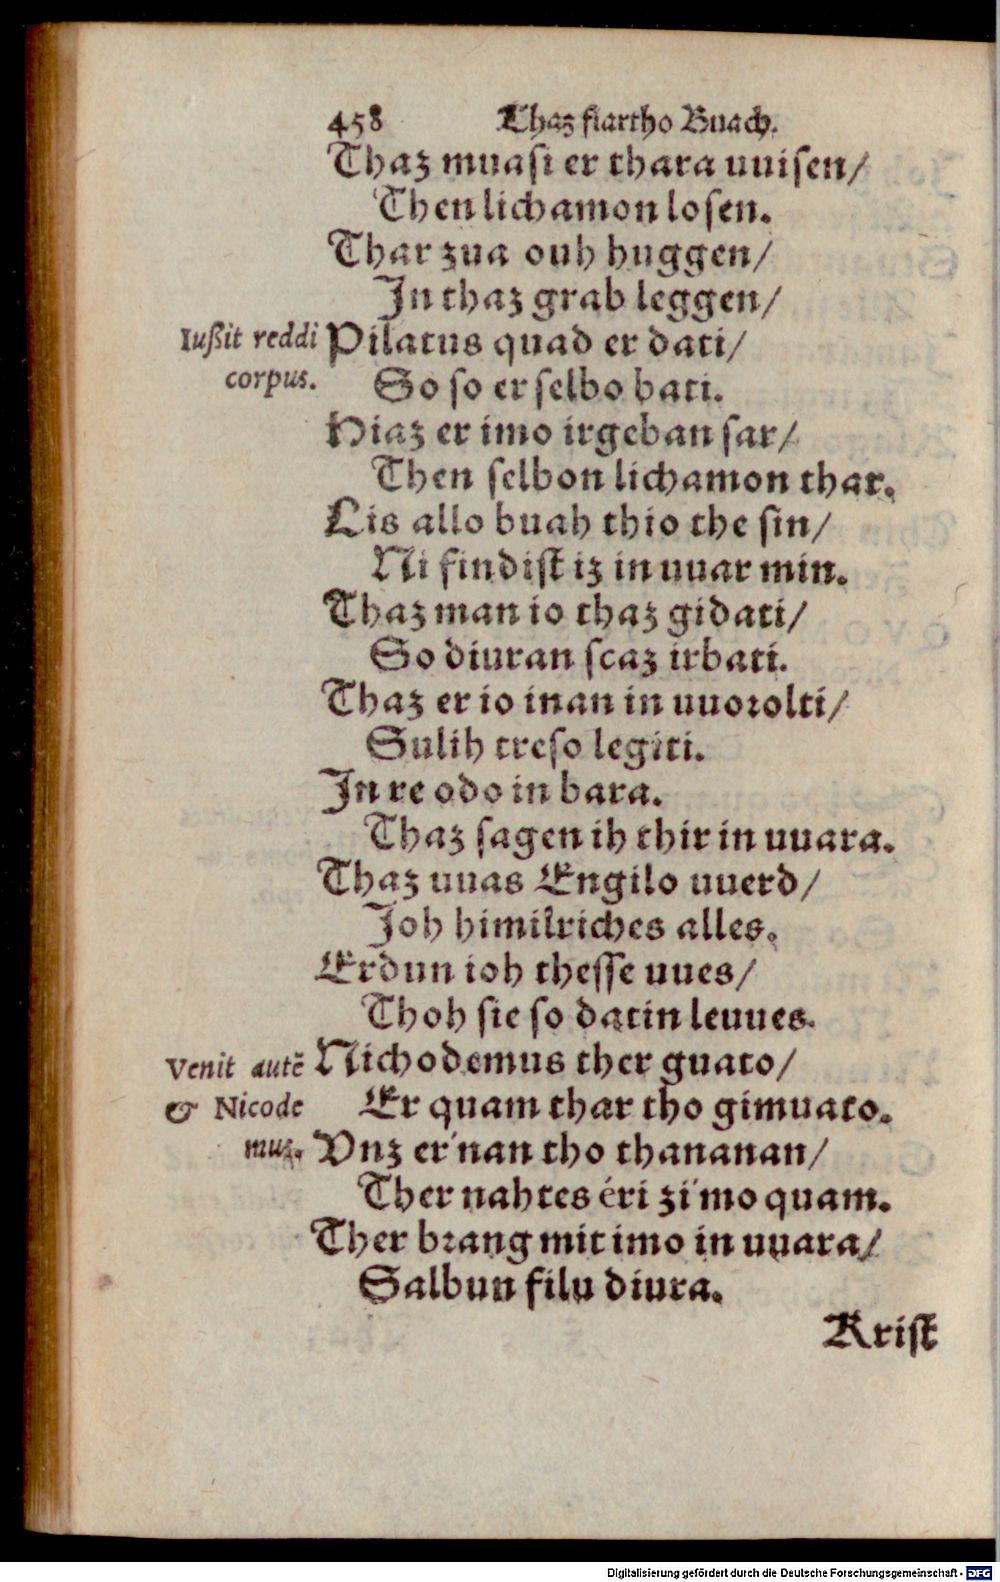 458 Thaz fiartho Buach.
Thaz muasi er thara uuisen/
Then lichamon losen.
Thar zua ouh huggen/
In thaz grab leggen/
Iußit reddi corpus.
Pilatus quad er dati/
So so er selbo bati.
Hiaz er imo irgeban sar/
Then selbon lichamon thar.
Lis allo buah thio the sin/
Ni findist iz in uuar min.
Thaz man io thaz gidati/
So diuran scaz irbati.
Thaz er io inan in uuorolti/
Sulih treso legiti.
In re odo in bara.
Thaz sagen ih thir in uuara.
Thaz uuas Engilo uuerd/
Joh himilriches alles.
Erdun ioh thesse uues/
Thoh sie so datin leuues.
Venit autẽ & Nicode mus.
Nichodemus ther guato/
Er quam thar tho gimuato.
Vnz er'nan tho thananan/
Ther nahtes éri zi'mo quam.
Ther brang mit imo in uuara/
Salbun filu diura.
Krist
Digitalisierung gefördert durch die Deutsche Forschungsgemeinschaft - DFG